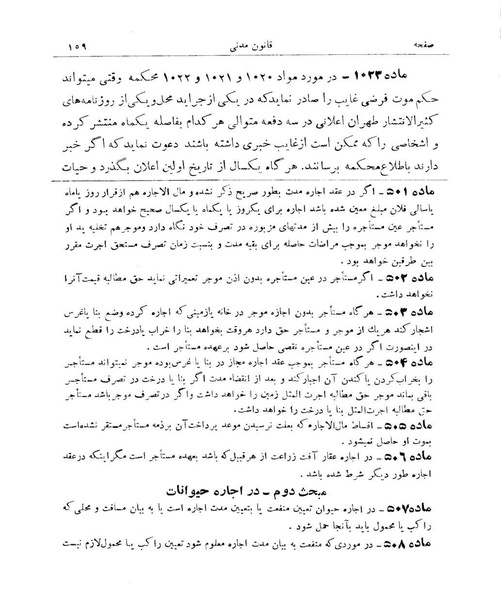 صفحه قانون مدنی ۱۵۹
ماده ۱۰۲۳ - در مورد مواد ۱۰۲۰ و ۱۰۲۱ و ۱۰۲۲ محکمه وقتی میتواند
حکم موت فرضی غایب را صادر نماید که در یکی از جراید محل و یکی از روزنامه‌های
کثیرالانتشار طهران اعلانی در سه دفعه متوالی هر کدام بفاصله یکماه منتشر کرده
و اشخاصی را که ممکن است از غایب خبری داشته باشند دعوت نماید که اگر خبر
دارند باطلاع محکمه برسانند. هر گاه یکسال از تاریخ اولین اعلان بگذرد و حیات
ماده ۵۰۱ - اگر در عقد اجاره مدت بطور صریح ذکر نشده و مال الاجاره هم از قرار روز یا ماه
یا سالی فلان مبلغ معین شده باشد اجاره برای یکروز یا یکماه یا یکسال صحیح خواهد بود و اگر
مستأجر عین مستأجره را بیش از مدتهای مزبوره در تصرف خود نگاه دارد و موجر هم تخلیه ید او
را نخواهد موجر بموجب مراضات حاصله برای بقیه مدت و بنسبت زمان تصرف مستحق اجرت مقرر
بین طرفین خواهد بود .
ماده ۵۰۲ - اگر مستأجر در عین مستأجره بدون اذن موجر تعمیراتی نماید حق مطالبه قیمت آنرا
نخواهد داشت .
ماده ۵۰۳ - هر گاه مستأجر بدون اجازه موجر در خانه یا زمینی که اجاره کرده وضع بنا یا غرس
اشجار کند هر یک از موجر و مستأجر حق دارد هر وقت بخواهد بنا را خراب یا درخت را قطع نماید
در اینصورت اگر در عین مستأجره نقصی حاصل شود بر عهده مستأجر است .
ماده ۵۰۴ - هر گاه مستأجر بموجب عقد اجاره مجاز در بنا یا غرس بوده موجر نمیتواند مستأجر
را بخراب کردن یا کندن آن اجبار کند و بعد از انقضاء مدت اگر بنا یا درخت در تصرف مستأجر
باقی بماند موجر حق مطالبه اجرت المثل زمین را خواهد داشت و اگر در تصرف موجر باشد مستأجر
حق مطالبه اجرت‌المثل بنا یا درخت را خواهد داشت .
ماده ۵۰۵ - اقساط مال‌الاجاره که بعلت نرسیدن موعد پرداخت آن بر ذمه مستأجر مستقر نشده است
بموت او حاصل نمیشود .
ماده ۵۰۶ - در اجاره عقار آفت زراعت از هر قبیل که باشد بعهده مستأجر است مگر اینکه در عقد
اجاره طور دیگر شرط شده باشد .
مبحث دوم - در اجاره حیوانات
ماده ۵۰۷ - در اجاره حیوان تعیین منفعت یا بتعیین مدت اجاره است یا به بیان مسافت و محلی که
راکب یا محمول باید بآنجا حمل شود .
ماده ۵۰۸ - در موردی که منفعت به بیان مدت اجاره معلوم شود تعیین راکب یا محمول لازم نیست